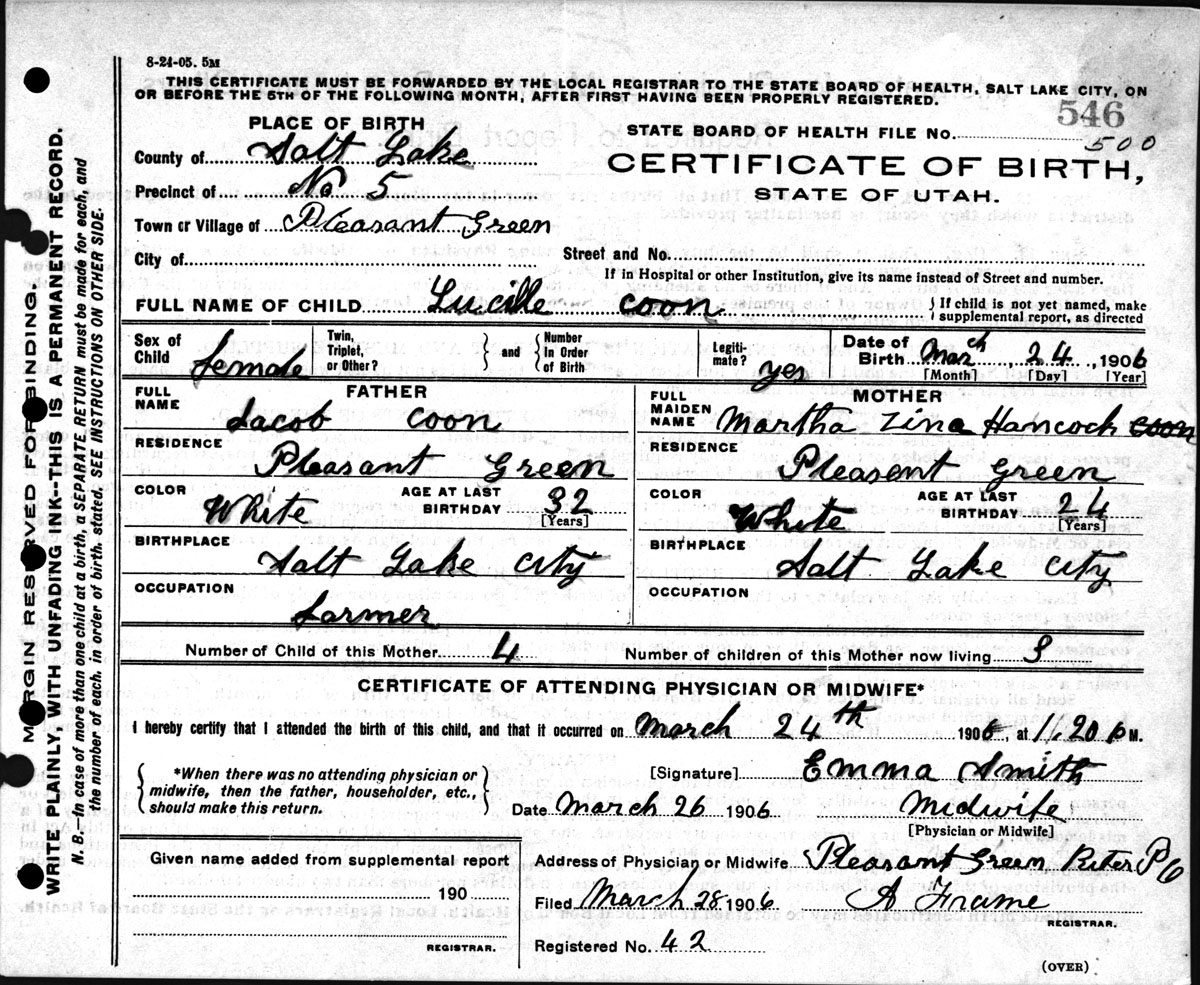 8-24-05. 5M
THIS CERTIFICATE MUST BE FORWARDED BY THE LOCAL REGISTRAR TO THE STATE BOARD OF HEALTH, SALT LAKE CITY, ON
OR BEFORE THE 5TH OF THE FOLLOWING MONTH, AFTER FIRST HAVING BEEN PROPERLY REGISTERED.
546
PLACE OF BIRTH
STATE BOARD OF HEALTH FILE NO. 500
County of Salt Lake
CERTIFICATE OF BIRTH,
Precinct of No 5
STATE OF UTAH.
Town or Village of Pleasant Green
City of
Street and No.
If in Hospital or other Institution, give its name instead of Street and number.
FULL NAME OF CHILD Lucille Coon
If child is not yet named, make
supplemental report, as directed
Sex of Child female
Twin, Triplet, or Other?
and
Number In Order of Birth
Legiti-mate? yes
Date of Birth March 24, 1906
[Month] [Day] [Year]
FATHER
FULL NAME Jacob Coon
RESIDENCE Pleasant Green
COLOR White
AGE AT LAST BIRTHDAY 32
[Years]
BIRTHPLACE Salt Lake City
OCCUPATION Farmer
MOTHER
FULL MAIDEN NAME Martha Zina Hancock Coon
RESIDENCE Pleasent Green
COLOR White
AGE AT LAST BIRTHDAY 24
[Years]
BIRTHPLACE Salt Lake City
OCCUPATION
Number of Child of this Mother 4
Number of children of this Mother now living 3
CERTIFICATE OF ATTENDING PHYSICIAN OR MIDWIFE*
I hereby certify that I attended the birth of this child, and that it occurred on March 24th 1906, at 11.20 PM.
*When there was no attending physician or
midwife, then the father, householder, etc.,
should make this return.
[Signature] Emma Smith
Date March 26 1906
Midwife
[Physician or Midwife]
Given name added from supplemental report
190
REGISTRAR.
Address of Physician or Midwife Pleasant Green Riter P O
Filed March 28 1906
A Frame
REGISTRAR.
Registered No. 42
(OVER)
MARGIN RESERVED FOR BINDING.
WRITE PLAINLY, WITH UNFADING INK--THIS IS A PERMANENT RECORD.
N. B.--In case of more than one child at a birth, a SEPARATE RETURN must be made for each, and
the number of each, in order of birth, stated. SEE INSTRUCTIONS ON OTHER SIDE.